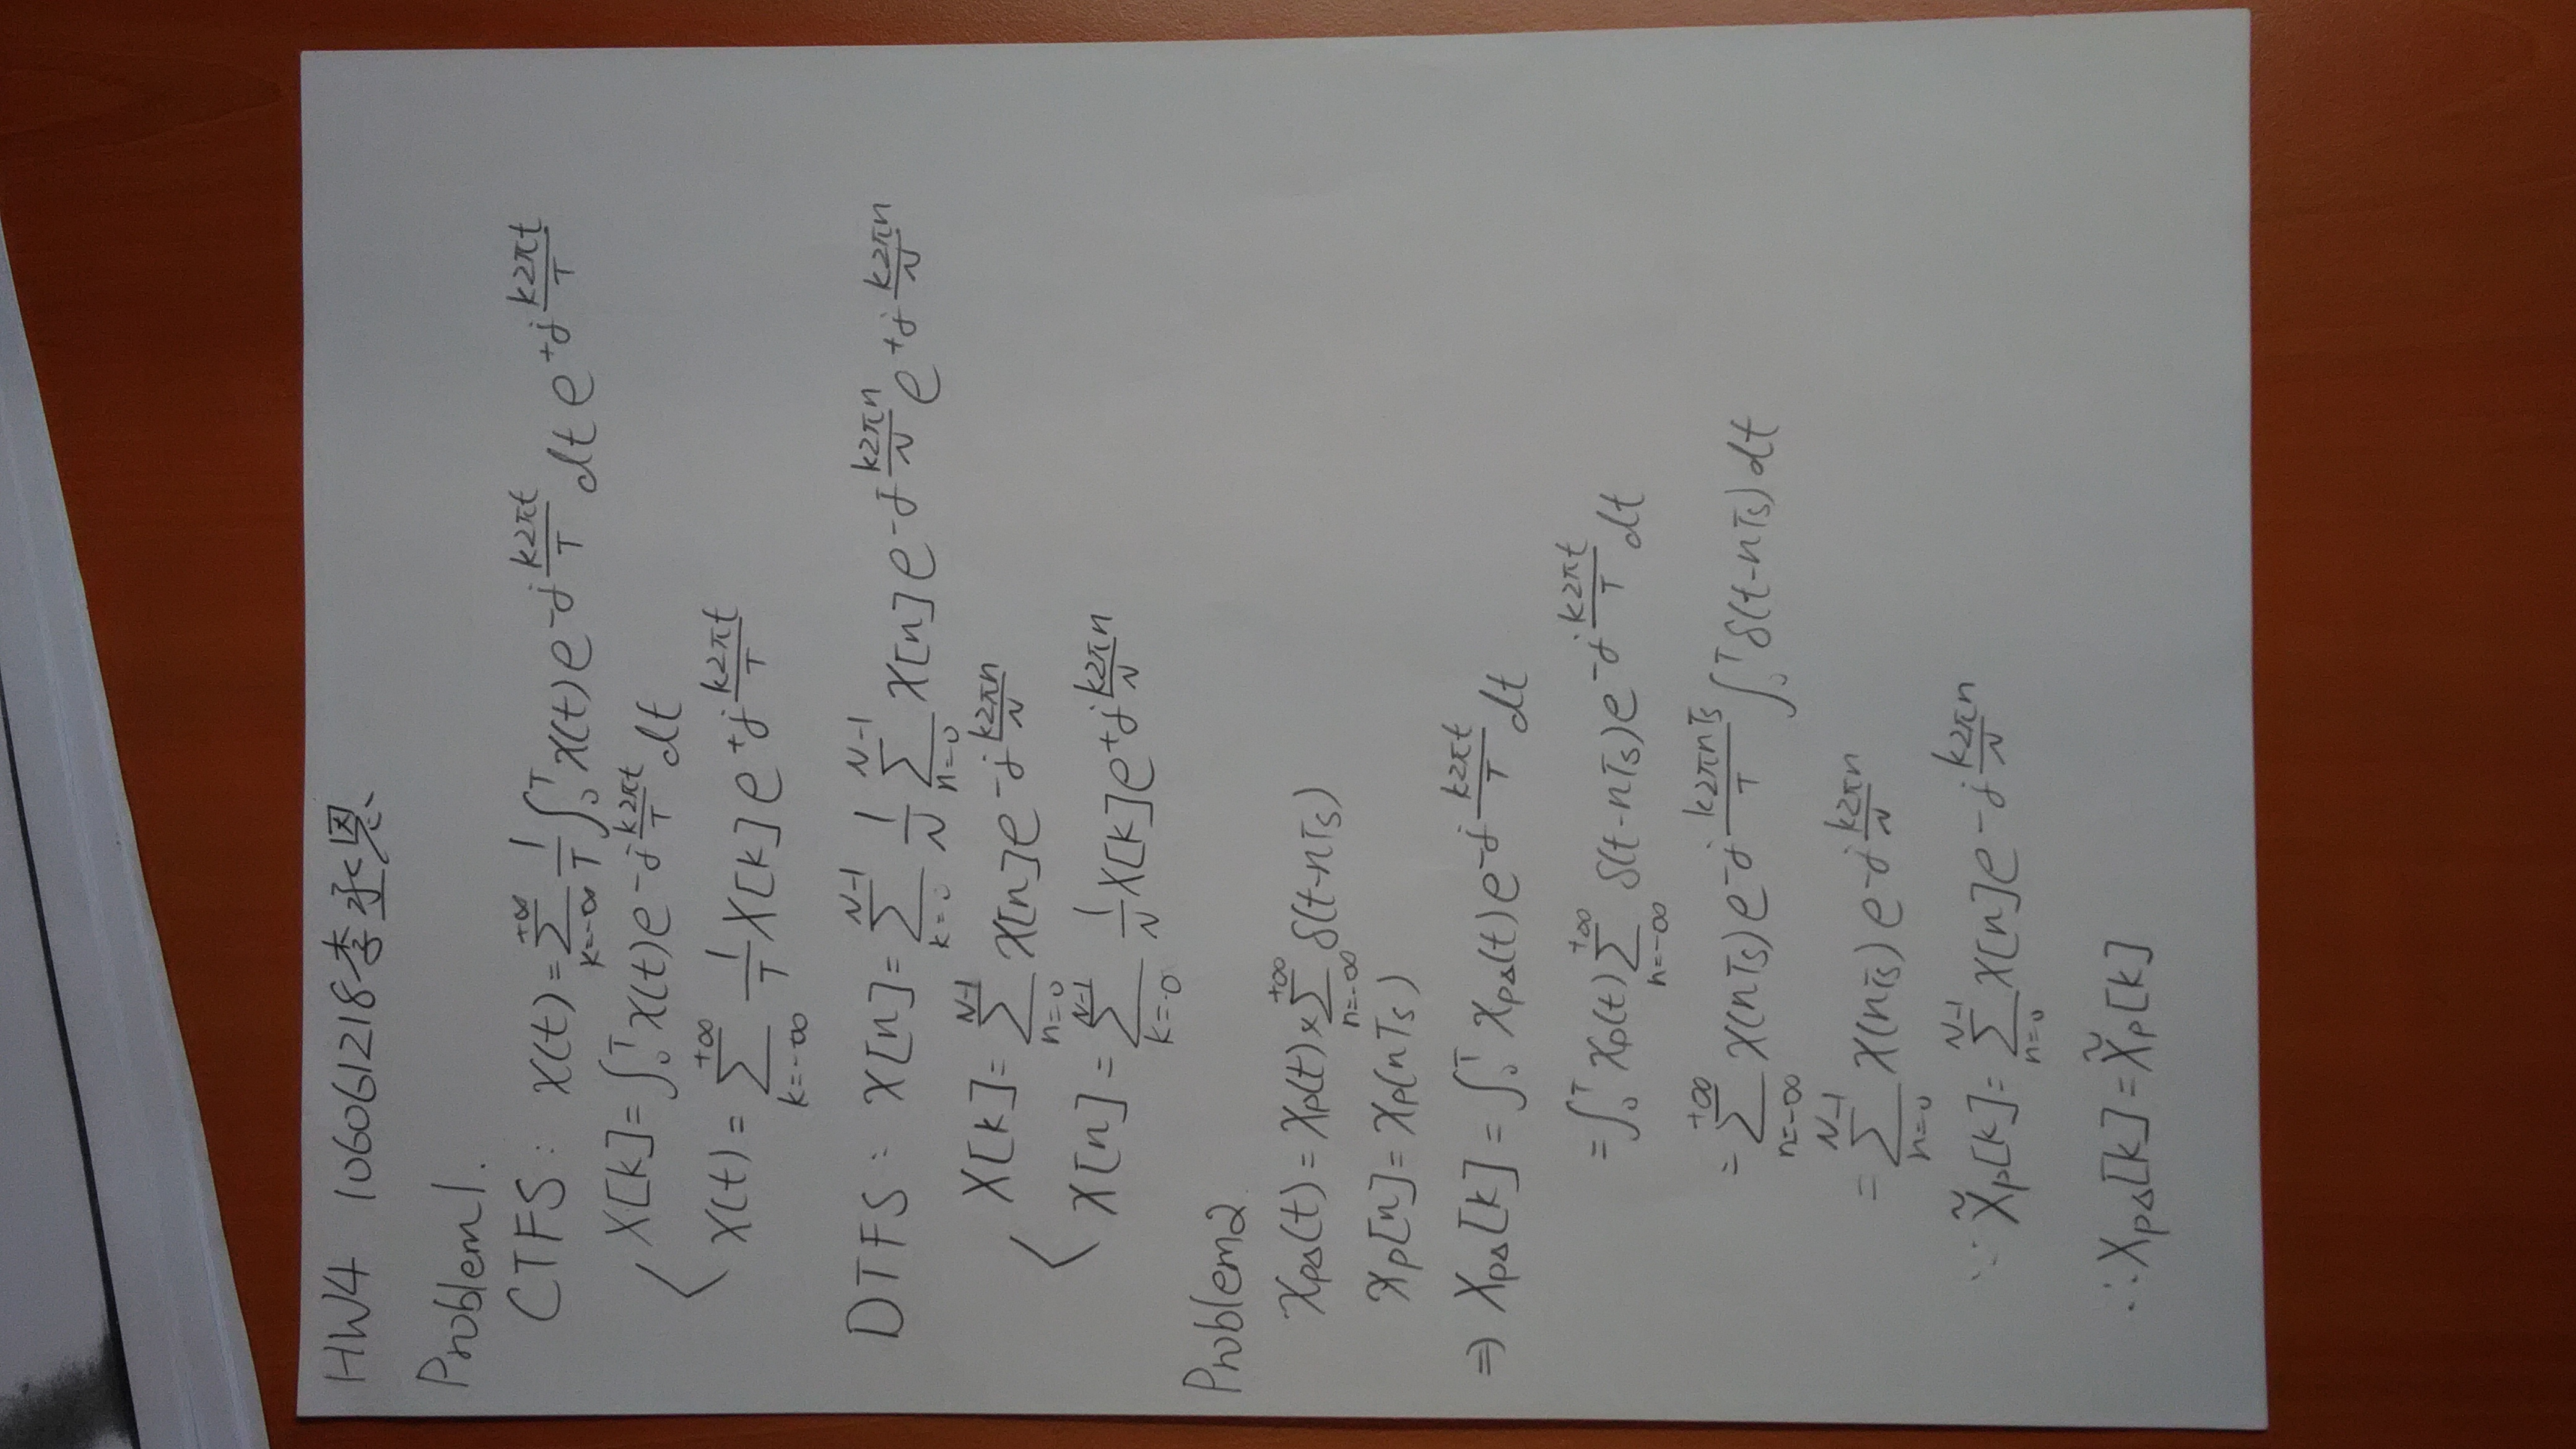 HW4 106061218李丞恩
Problem1.
CTFS: x(t)=\sum_{k=-∞}^{+∞} \frac{1}{T} \int_0^T x(t)e^{-j\frac{k2πt}{T}}dt e^{+j\frac{k2πt}{T}}
X[k]=\int_0^T x(t)e^{-j\frac{k2πt}{T}}dt
x(t)=\sum_{k=-∞}^{+∞} \frac{1}{T}X[k]e^{+j\frac{k2πt}{T}}
DTFS: x[n]=\sum_{k=0}^{N-1} \frac{1}{N} \sum_{n=0}^{N-1} x[n]e^{-j\frac{k2πn}{N}}e^{+j\frac{k2πn}{N}}
X[k]=\sum_{n=0}^{N-1} x[n]e^{-j\frac{k2πn}{N}}
x[n]=\sum_{k=0}^{N-1} \frac{1}{N}X[k]e^{+j\frac{k2πn}{N}}
Problem2
x_{pΔ}(t)=x_p(t)×\sum_{n=-∞}^{+∞} δ(t-nTs)
x_p[n]=x_p(nTs)
⇒ X_{pΔ}[k]=\int_0^T x_{pΔ}(t)e^{-j\frac{k2πt}{T}}dt
=\int_0^T x_p(t)\sum_{n=-∞}^{+∞} δ(t-nTs)e^{-j\frac{k2πt}{T}}dt
=\sum_{n=-∞}^{+∞} x(nTs)e^{-j\frac{k2πnTs}{T}}\int_0^T δ(t-nTs)dt
=\sum_{n=0}^{N-1} x(nTs)e^{-j\frac{k2πn}{N}}
∵ \tilde{X}_p[k]=\sum_{n=0}^{N-1} x[n]e^{-j\frac{k2πn}{N}}
∴X_{pΔ}[k]=\tilde{X}_p[k]